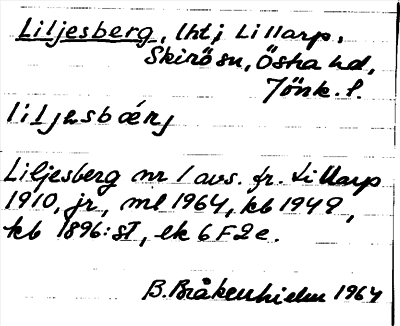 Liljesberg, lht i Lillarp,
Skirö sn, Östra hd,
Jönk. l.
liljesbærj
Liljesberg nr 1 avs. fr. Lillarp
1910, jr, ml 1964, kb 1949,
kb 1896: ST, ek 6F2e.
B. Bråkenhielm 1964